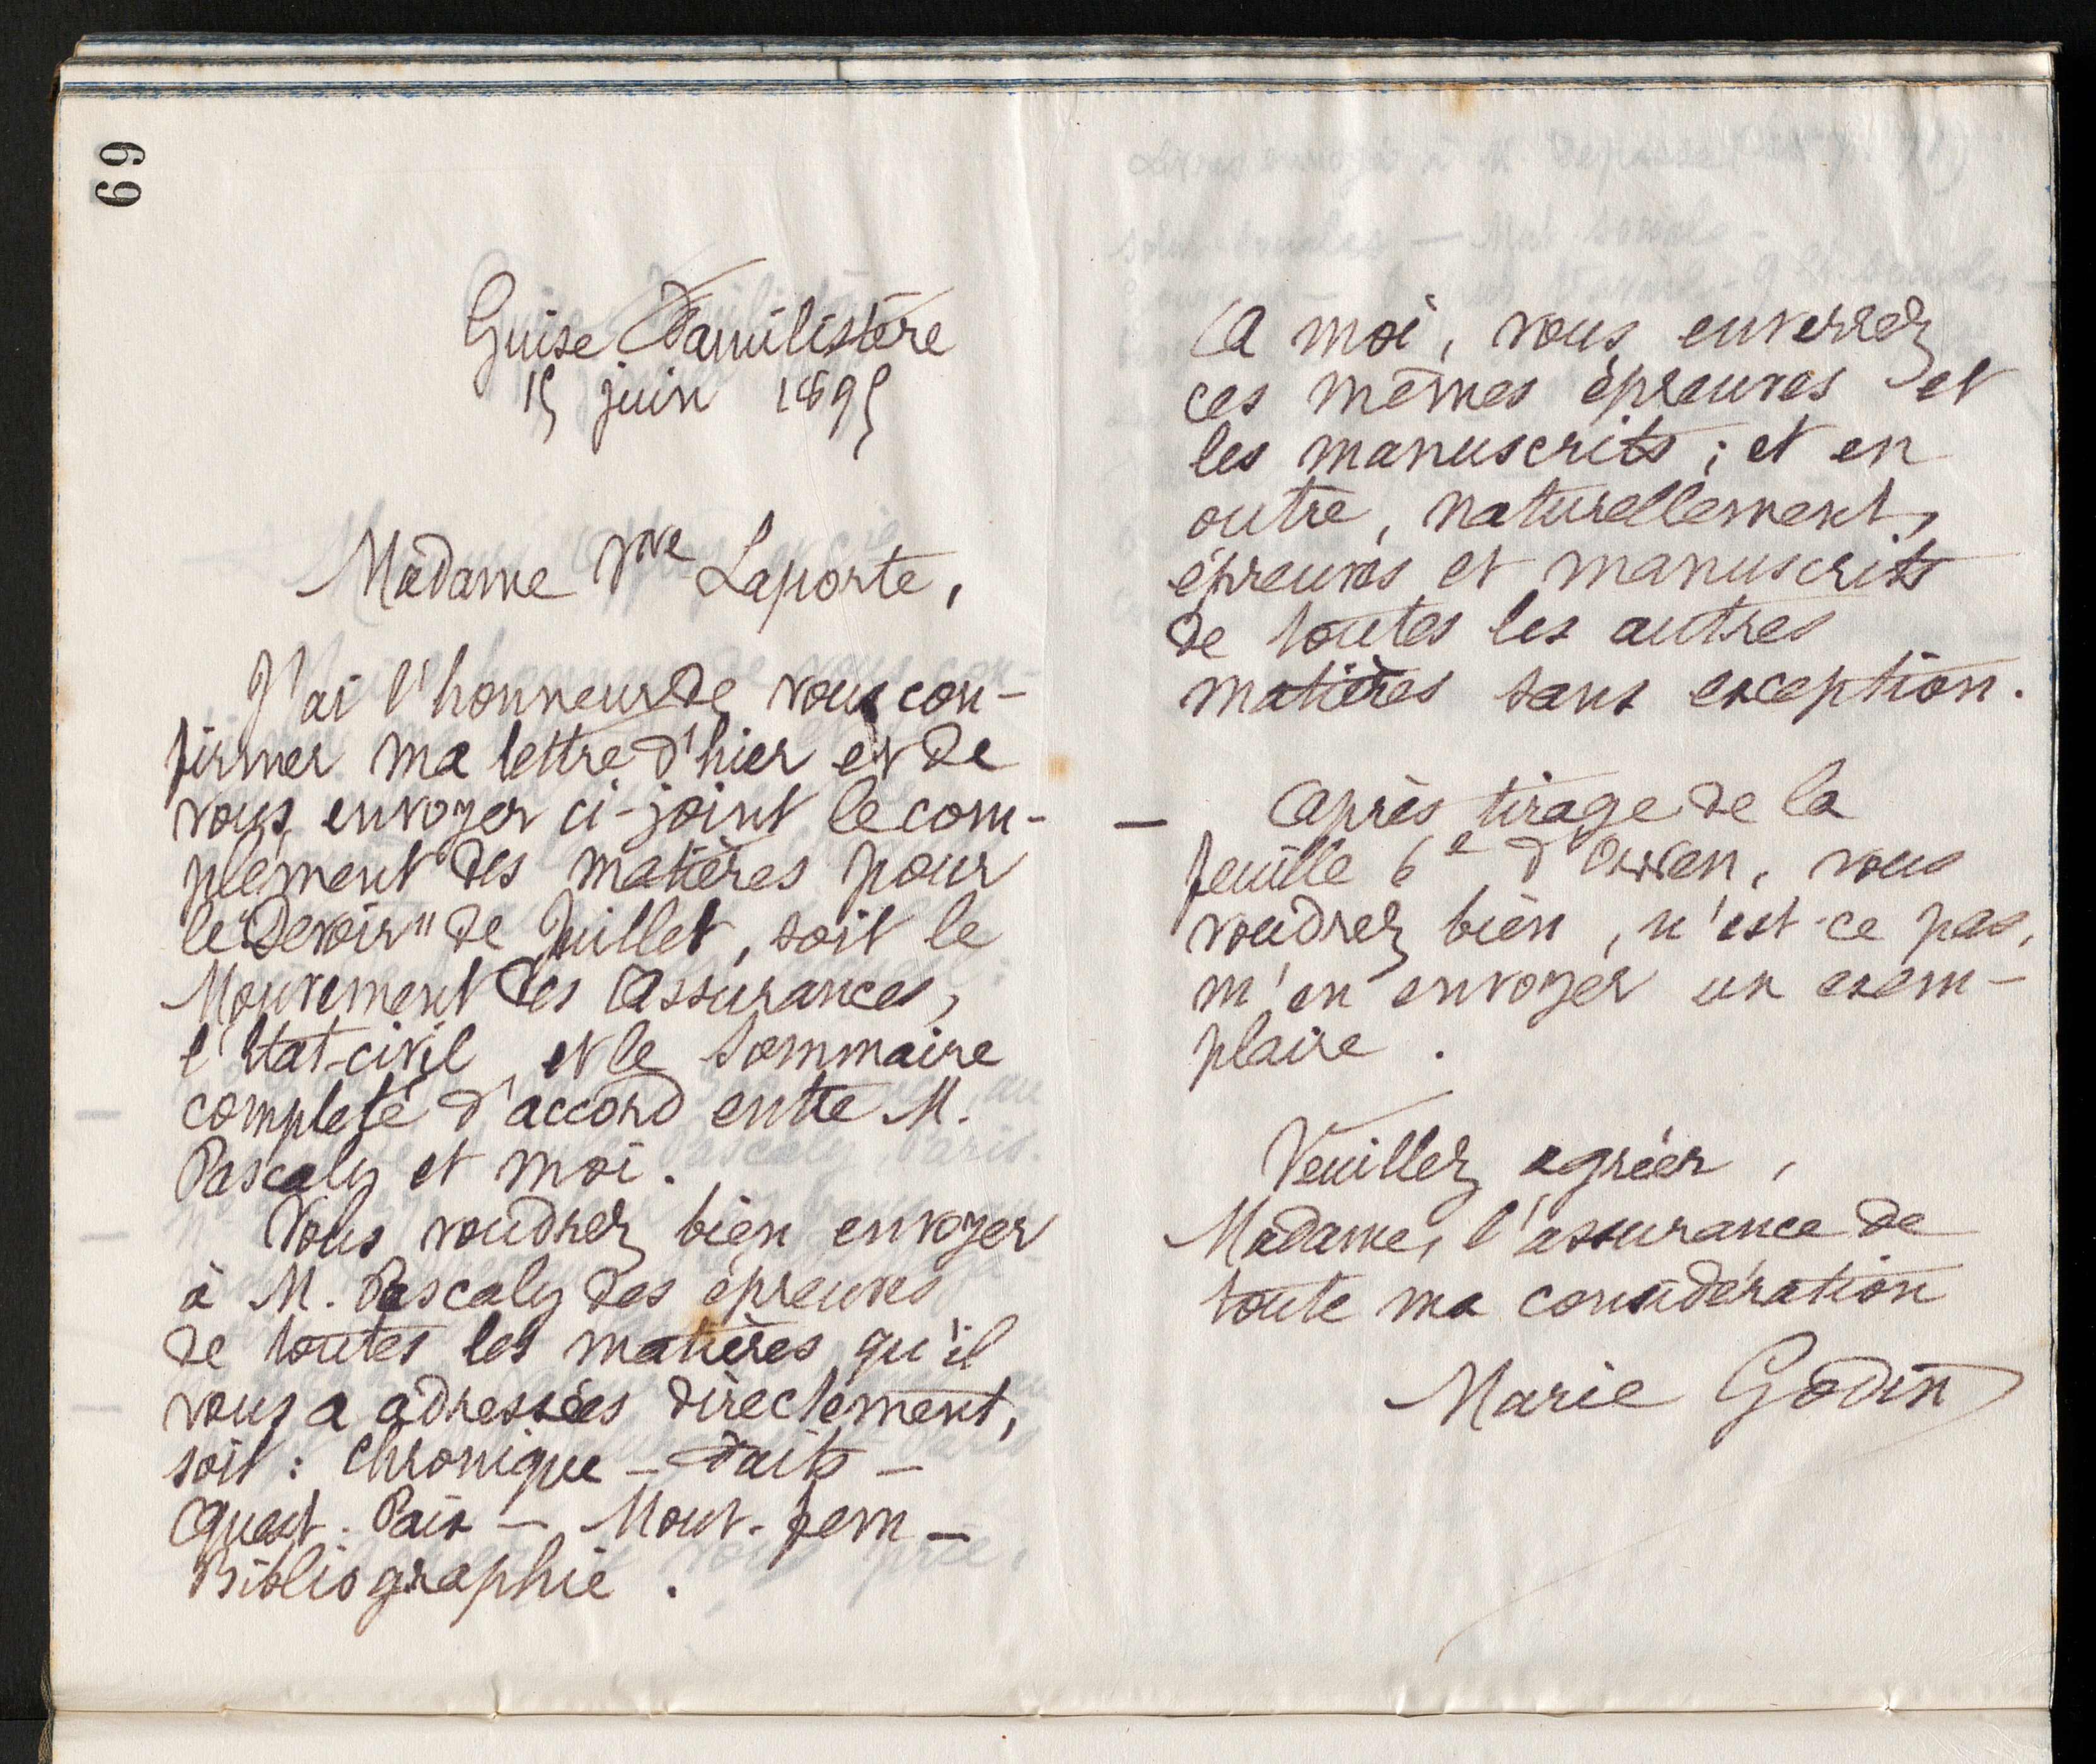 69
Guise Familistère
15 juin 1895
Madame Vve Laporte,
J'ai l'honneur de vous con-
firmer ma lettre d'hier et de
vous envoyer ci-joint le com-
plément des matières pour
le "Devoir" de Juillet, soit le
Mouvement des Assurances,
l'Etat-civil et le Sommaire
complété d'accord entre M.
Pascaly et moi.
Vous voudrez bien envoyer
à M. Pascaly des épreuves
de toutes les matières qu'il
vous a adressées directement,
soit : Chronique - Faits -
Quest. Paix - Mouv. fem -
Bibliographie.
A moi, vous enverrez
ces mêmes épreuves et
les manuscrits ; et en
outre, naturellement,
épreuves et manuscrits
de toutes les autres
matières sans exception.
- Après tirage de la
feuille 6e d'Owen, vous
voudrez bien, n'est-ce pas,
m'en envoyer un exem-
plaire.
Veuillez agréer,
Madame, l'assurance de
toute ma considération
Marie Godin